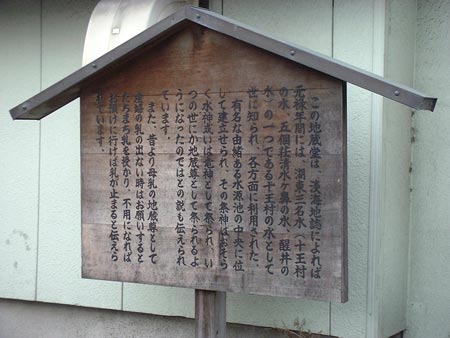 この地蔵堂は、淡海地誌によれば
元禄年間には、湖東三名水(十王村
の水、五個荘清水ヶ鼻の水、醒井の
水)の一つである十王村の水として
世に知られ、各方面に利用された。
有名な由緒ある水源池の中央に位
して建立せられ、その祭神はおそら
く水神或いは竜神として祭られ、い
つの世にか地蔵尊として祭られるよ
うになったのではとの説も伝えられ
ています。
また、昔より母乳の地蔵尊として
産婦の乳の出ない時はお願いすると
たちまち乳を授かり、不用になれば
お預けに行けば乳が止まると伝えら
れています。